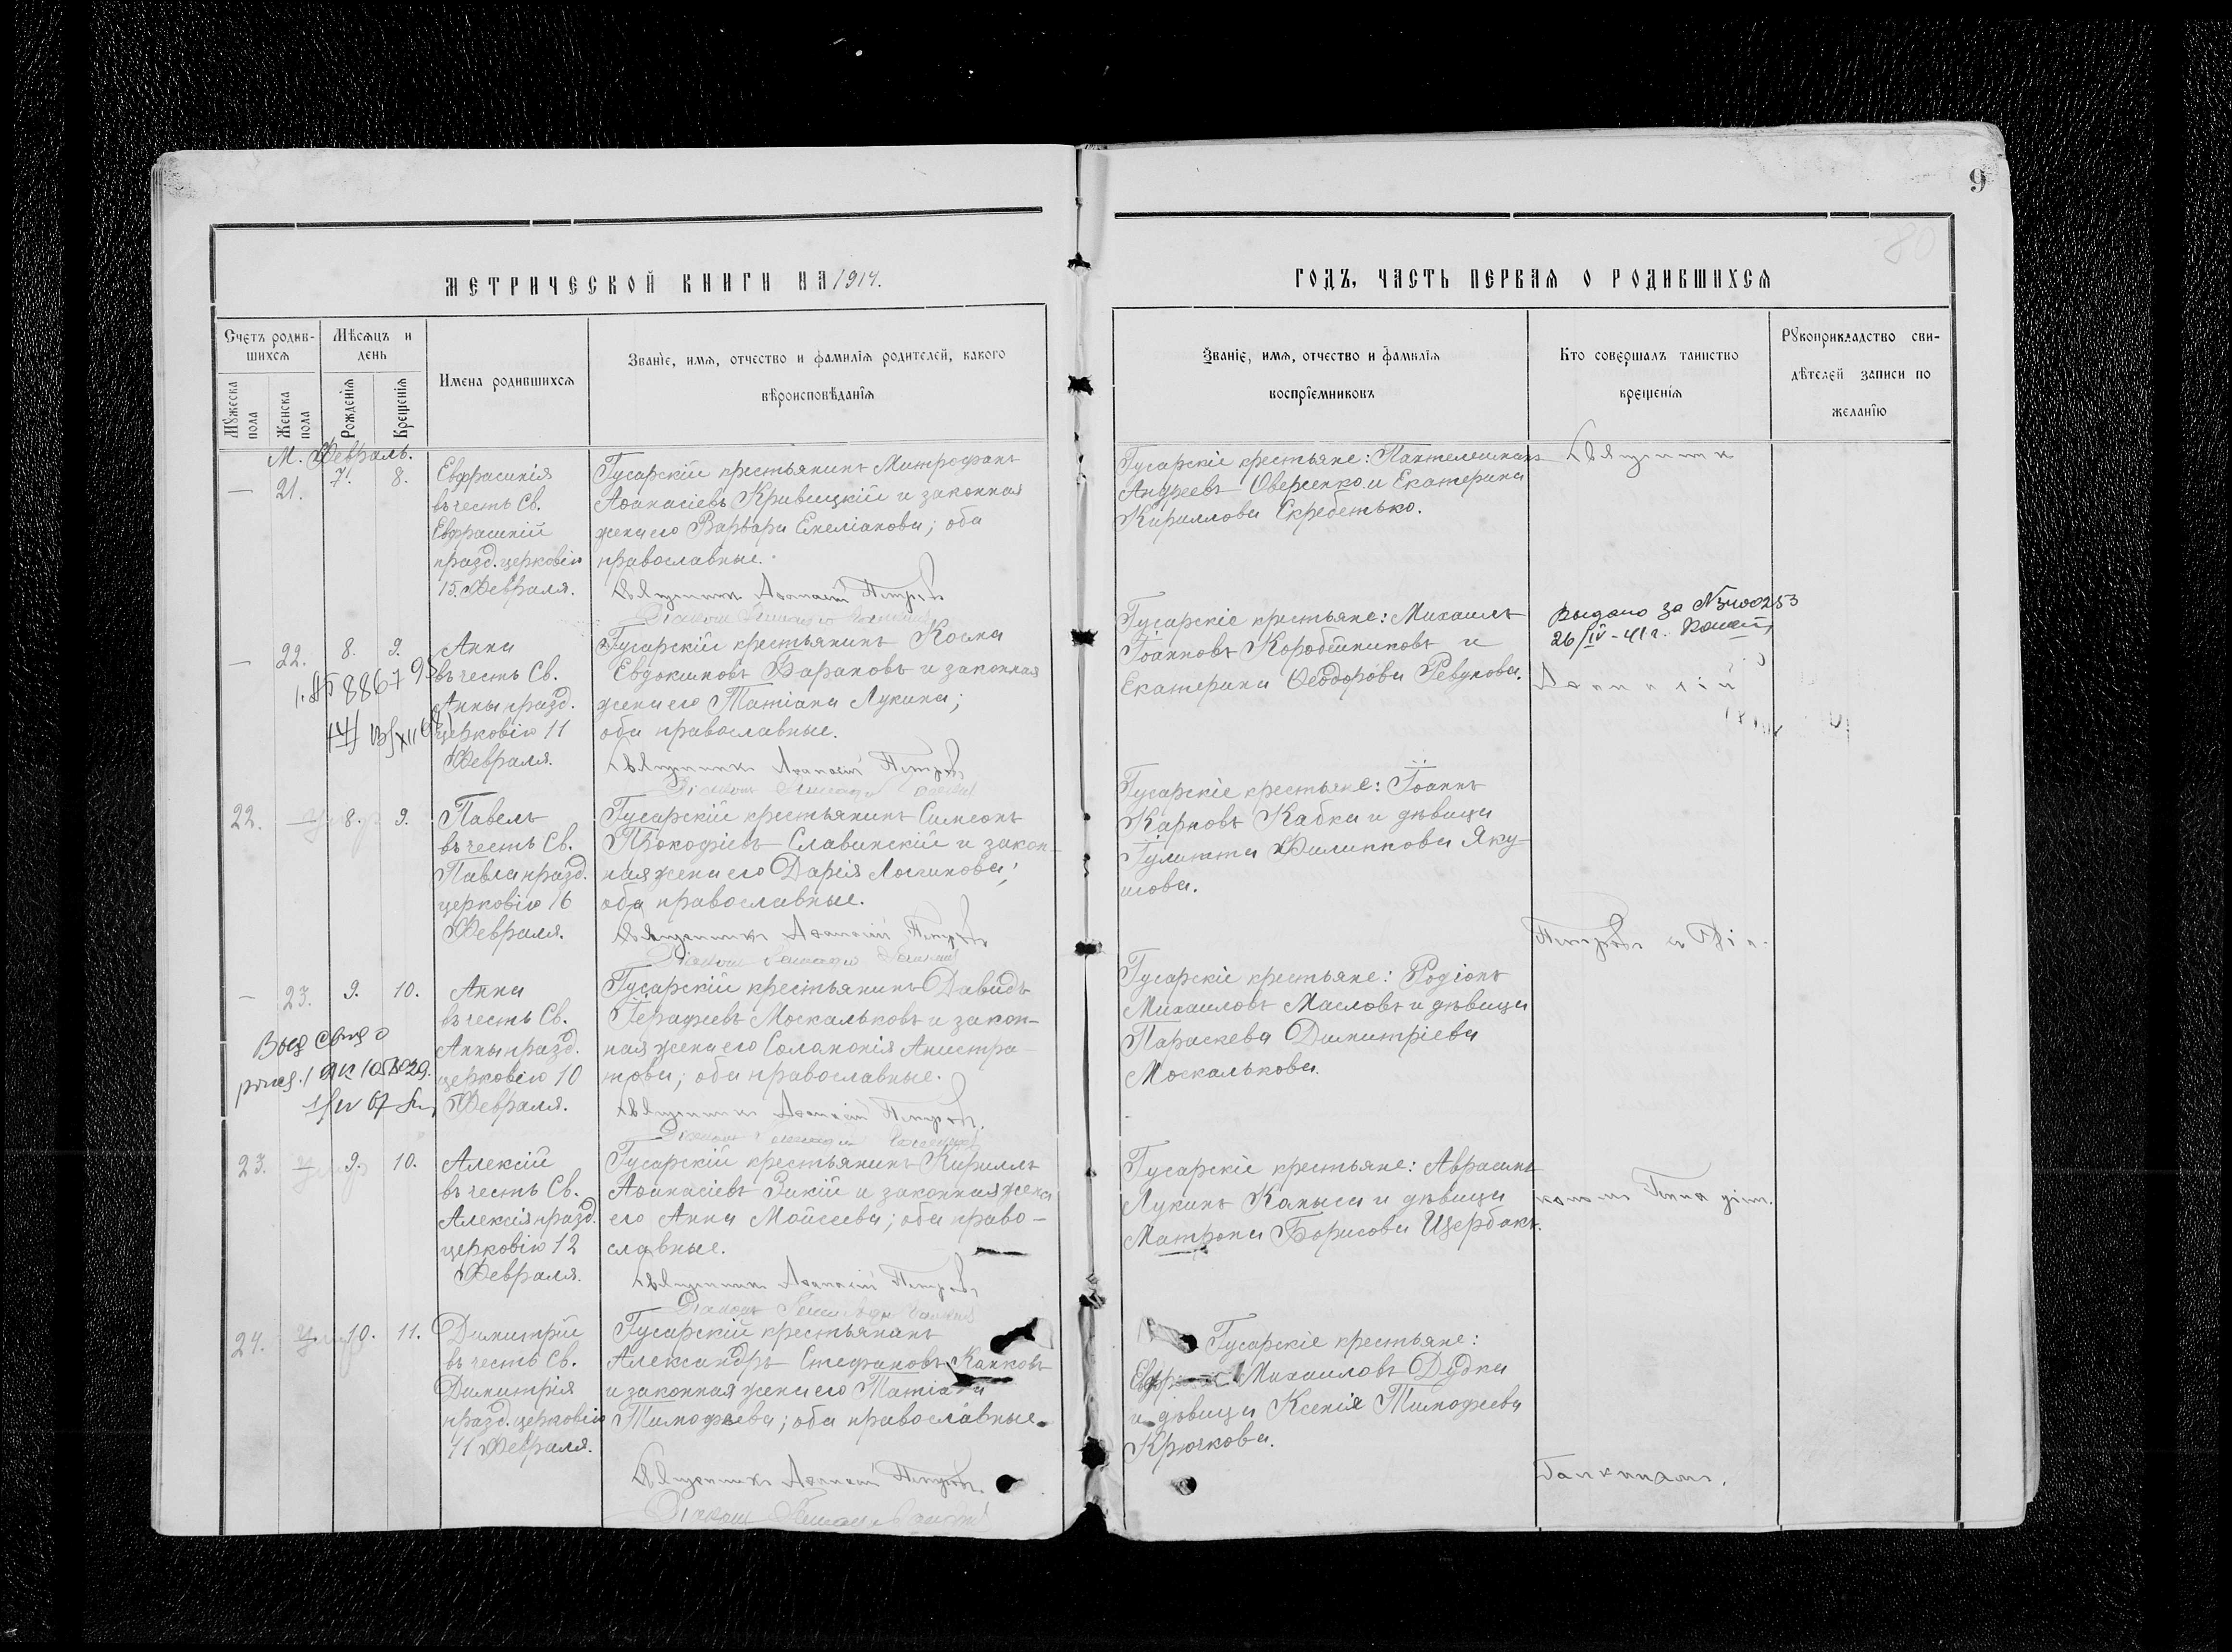 9
80
МЕТРИЧЕСКОЙ КНИГИ НА 1914.
ГОДЪ, ЧАСТЬ ПЕРВАЯ О РОДИВШИХСЯ
Счетъ родив-
шихся
Мѣсяцъ и
день
Мужеска
пола
Женска
пола
Рожденія
Крещенія
Имена родившихся
Званіе, имя, отчество и фамилія родителей, какого
вѣроисповѣданія
Званіе, имя, отчество и фамилія
воспріемниковъ
Кто совершалъ таинство
крещенія
Рукоприкладство сви-
дѣтелей записи по
желанію
М. Февраль.
— 21. 7. 8.
Евфрасинія
въ честь Св.
Евфрасиній
празд. церковію
15. Февраля.
Гусарскій крестьянинъ Митрофанъ
Аѳанасіевъ Кривицкій и законная
жена его Варвара Емеліанова; оба
православные.
Священникъ Аѳанасій Петровъ
Діаконъ
Гусарскіе крестьяне: Пантелеимонъ
Андреевъ Оверченко и Екатерина
Кириллова Скребетько.
Священник
— 22. 8. 9.
Анна
въ честь Св.
Анны празд.
церковію 11
Февраля.
Гусарскій крестьянинъ Косма
Евдокимовъ Барановъ и законная
жена его Татіана Лукина;
оба православные.
Священникъ Аѳанасій Петровъ
Діаконъ
Гусарскіе крестьяне: Михаилъ
Іоанновъ Коробейниковъ и
Екатерина Ѳеодорова Ревунова.
Выдано за №
26/IV-41г.
Аѳанасій
22. 8. 9.
Павелъ
въ честь Св.
Павла празд.
церковію 16
Февраля.
Гусарскій крестьянинъ Симеонъ
Прокофіевъ Славинскій и закон-
ная жена его Дарія Логинова;
оба православные.
Священникъ Аѳанасій Петровъ
Діаконъ
Гусарскіе крестьяне: Іоаннъ
Карповъ Кабка и дѣвица
Іулитта Филиппова Яку-
шова.
Петровъ съ Діа-
— 23. 9. 10.
Анна
въ честь Св.
Анны празд.
церковію 10
Февраля.
Гусарскій крестьянинъ Давидъ
Герафіевъ Москальковъ и закон-
ная жена его Соломонія Анистра-
това; оба православные.
Священникъ Аѳанасій Петровъ.
Діаконъ
Гусарскіе крестьяне: Родіонъ
Михаиловъ Масловъ и дѣвица
Параскева Димитріева
Москалькова.
23. 9. 10.
Алексій
въ честь Св.
Алексія празд.
церковію 12
Февраля.
Гусарскій крестьянинъ Кириллъ
Аѳанасіевъ Зикій и законная жена
его Анна Моисеева; оба право-
славные.
Священникъ Аѳанасій Петровъ
Діаконъ
Гусарскіе крестьяне: Аврамъ
Лукинъ Капыса и дѣвица
Матрона Борисова Щербакъ.
кономъ Геннадіем.
24. 10. 11.
Димитрій
въ честь Св.
Димитрія
празд. церковію
11 Февраля.
Гусарскій крестьянинъ
Александръ Стефановъ Капковъ
и законная жена его Татіана
Тимофеева; оба православные.
Священникъ Аѳанасій Петровъ.
Діаконъ
Гусарскіе крестьяне:
Михаиловъ Дудка
и дѣвица Ксенія Тимофеева
Крючкова.